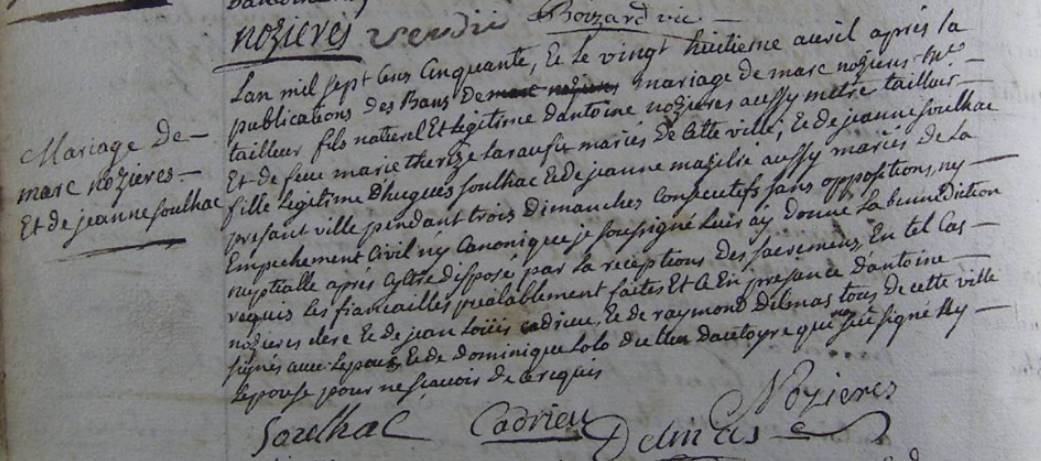 nozieres vendic Boizard vic
Mariage de
marc nozieres
Et de jeanne soulhac
Lan mil sept cens cinquante, & le vingt huitieme avril après la
publications des Bans de marc nozieres mariage de marc nozieres me
tailleur fils naturel Et legitime dantoine nozieres aussy metre tailleur
Et de feue marie therize mariés de cette ville, & de jeanne soulhac
fille legitime dhugues soulhac & de jeanne aussy mariés de la
presant ville pendant trois dimanches consecutifs sans oppositions, ny
Empechement Civil ny Canonique je soussigné leur ay donné la benediction
neptialle après disposé par la receptions des sacremens, En tel Cas
requis les fiancailles prealablement faites Et ce En presance dantoine
nozieres clerc & de jean Louis cadrieu, & de raymond Delmas tous de cette ville
signés avec Lepoux, & de dominique Lolo du soussigné Ny
Lepouse pour ne scavoir de ce requis
Soulhac Cadrieu Delmas Nozieres